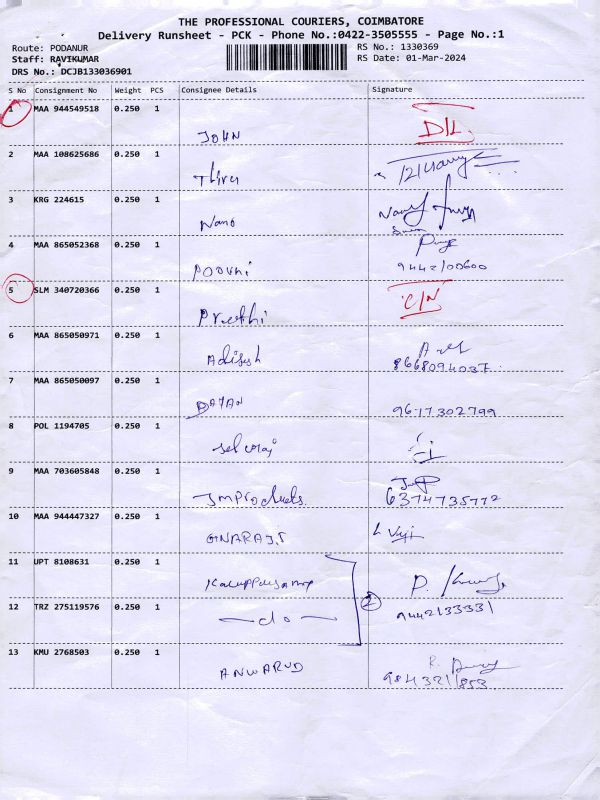 THE PROFESSIONAL COURIERS, COIMBATORE
Delivery Runsheet - PCK - Phone No.:0422-3505555 - Page No.:1
Route: PODANUR
RS No.: 1330369
Staff: RAVIKUMAR
RS Date: 01-Mar-2024
DRS No.: DCJB133036901
S No Consignment No Weight PCS Consignee Details Signature
1 MAA 944549518 0.250 1
JOHN D/L.
2 MAA 108625686 0.250 1
Thiru
3 KRG 224615 0.250 1
Nano
4 MAA 865052368 0.250 1
POOVNi 9442100600
5 SLM 340720366 0.250 1
Preethi C/N
6 MAA 865050971 0.250 1
Adisesh 8668094037
7 MAA 865050097 0.250 1
DAYAN 9677302799
8 POL 1194705 0.250 1
selvraj
9 MAA 703605848 0.250 1
JMProducts. 6374735772
10 MAA 944447327 0.250 1
GNARAJ.S L Viji
11 UPT 8108631 0.250 1
Karuppusamy
12 TRZ 275119576 0.250 1 2 9442133331
—do—
13 KMU 2768503 0.250 1
ANWARUD 9843211853